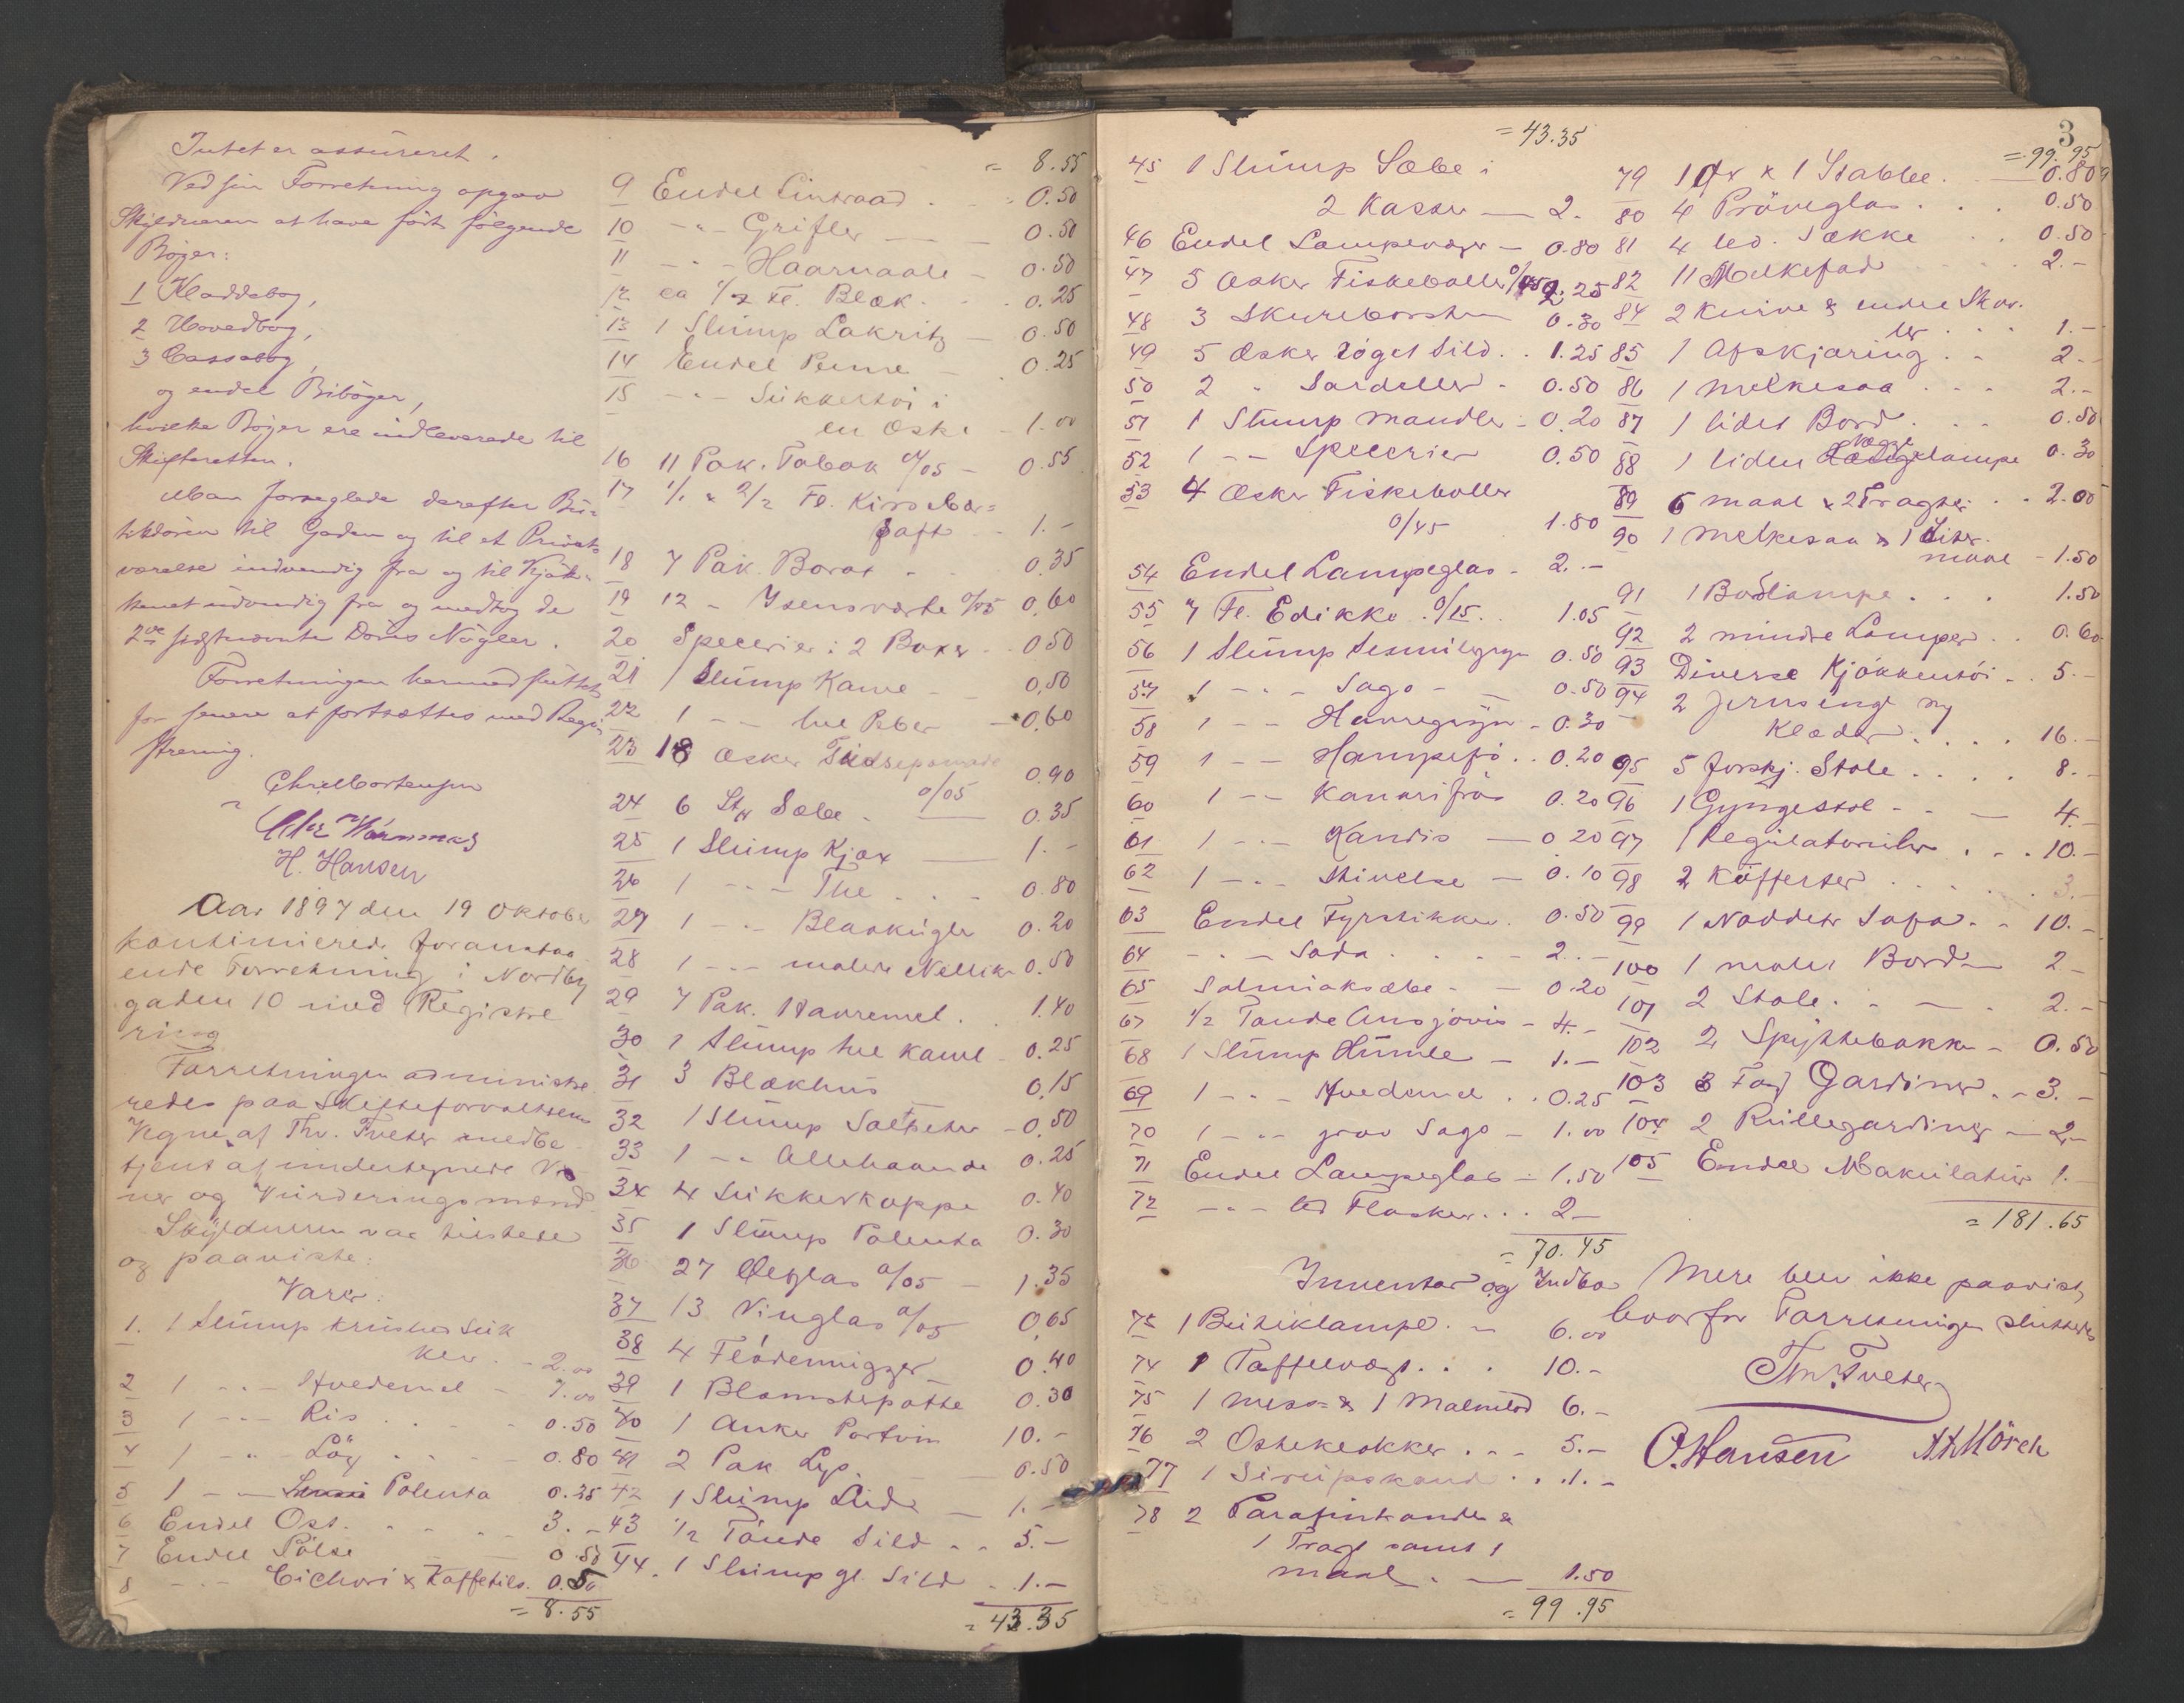 Intet er assureret.
Ved sin Forretning opgav
Skyldneren at have ført følgende
Bøger:
1 Kladdebog,
2 Hovedbog,
3 Cassabog,
og endel Bibøger,
hvilke Bøger ere indleverede til
Skifteretten.
Man forseglede derefter Bu-
tikdøren til Gaden og til et Privat
værelse indvendig fra og til Kjøk-
kenet udvendig fra og medtog de
2de sidstnævnte Døres Nøgler.
Forretningen hermed sluttet
for senere at fortsættes med Regi-
strering.
Chr. Mortensen
H. Hansen
Aar 1897 den 19 Oktober
kontinuerede foranstaa
ende Forretning i Nordby
gaden 10 med Registre
ring
Forretningen administre
redes paa Skifteforvalterens
Vegne af Thv. Tveter medbe
tjent af undertegnede Vid
ner og Vurderingsmænd.
Skyldneren var tilstede
og paaviste:
Varer:
1. 1 Slump knust Suk
ker. - 2.00
2 1 -"- Hvedemel - 1.00
3 1 -"- Ris . . . 0.50
4 1 -"- Løg . . . 0.80
5 1 -"- Polenta 0.25
6 Endel Ost. . . . 3.-
7 Endel Pølse 0.50
8 -"- Cichori & Kaffetils. 0.50
= 8.55
= 8.55
9 Endel Lintraad . - 0.50
10 -"- Grifler - 0.50
11 -"- Haarnaale - 0.50
12 ca 1/2 Fl. Blæk . . 0.25
13 1 Slump Lakritz - 0.50
14 Endel Penne - 0.25
15 -"- Sukkertøi i
en Æske - 1.00
16 11 Pak. Tobak a/05 - 0.55
17 1/1 & 2/2 Fl. Kirsebær-
saft - 1.-
18 7 Pak. Borax - 0.35
19 12 - Isensværte a/05 0.60
20 Specerier i 2 Boxer - 0.50
21 1 Slump Kanel - 0,50
22 1 -"- hel Peber - 0,60
23 18 Æsker
a/05 0.90
24 6 Stk Sæbe - 0.35
25 1 Slump Kjæx 1.-
26 1 -"- The . . . 0.80
27 1 -"- Blaakugle 0.20
28 1 -"- malede Nellik 0.50
29 7 Pak. Havremel . 1.40
30 1 Slump hel Kanel - 0.25
31 3 Blækhus 0,15
32 1 Slump Saltpeter - 0,50
33 1 -"- Allehaande 0.25
34 4 Sukkerkoppe 0.40
35 1 Slump Polenta 0.30
36 27 Ølglas a/05 - 1.35
37 13 Vinglas a/05 0,65
38 4 Flødemugger 0.40
39 1 Blomsterpotte 0.30
40 1 Anker Portvin 10.-
41 2 Pak Lys. 0.50
42 1 Slump 1.-
43 1/2 Tønde Sild . . 5.-
44. 1 Slump gl. Sild - 1.-
= 43.35
3
= 43.35
45 1 Slump Sæbe i
2 Kasser - 2.
46 Endel Lampevæger - 0.80
47 5 Æsker Fiskeboller a/45 2.25
48 3 Skurebørster 0.30
49 5 Æsker røget Sild . . 1.25
50 2 " Sardeller - 0.50
51 1 Slump Mandler - 0.20
52 1 -"- Specerier 0.50
53 4 Æsker Fiskeboller
a/45 1.80
54 Endel Lampeglas - 2.-
55 7 Fl. Edikke a/15 . . 1.05
56 1 Slump Semulegryn 0.50
57 1 -"- Sago - 0.50
58 1 -"- Havregryn - 0.30
59 1 -"- Hampefrø . . 0.20
60 1 -"- Kanarifrø 0.20
61 1 -"- Kandis - 0.20
62 1 -"- Stivelse - 0.10
63 Endel Fyrstikker. 0.50
64 -"- Soda . . . . 2.-
65 Salmiaksæbe - 0.20
67 1/2 Tønde Ansjovis - 4.-
68 1 Slump Humle - 1.-
69 1 -"- Hvedemel . . 0.25
70 1 -"- grov Sago - 1.00
71 Endel Lampeglas - 1.50
72 -"- led Flasker . . . 2.-
= 70.45
Inventar og Indbo
73 1 Butiklampe. - 6.00
74 1 Taffelvægt . . . 10.-
75 1 Mess- & 1 Malmlod 6.-
76 2 Osteklokker . . - 5.-
77 1 Sirupskande . . . 1.-
78 2 Parafinkander &
1 Tragt samt 1
maal. - 1.50
= 99.95
= 99.95
79 1 Øx & 1 Stabbe. 0.80
80 4 Prøveglas . . . 0.50
81 4 led. Sække . . 0.50
82 11 Melkefad 2.-
84 2 Knive & endel Skuf.
ler . . . 1.-
85 1 Afskjæring . . 2.-
86 1 Melkesaa . . . 2.-
87 1 lidet Bord . . . 0.50
88 1 liden Væggelampe 0.30
89 6 maal & 2 Tragter . . 2.00
90 1 Melkesaa & 1 Liter
maal - 1.50
91 1 Bordlampe . . . 1.50
92 2 mindre Lamper . . 0.60
93 Diverse Kjøkkentøi . . 5.-
94 2 Jernsenge og
Klæder . . . . 16.-
95 5 forskj. Stole . . . . 8.-
96 1 Gyngestol - - 4.-
97 1 Regulatoruhr . . . 10.-
98 2 Kufferter . . . . . . 3.-
99 1 Sofa . . 10.-
100 1 malet Bord - 2-
101 2 Stole . . - . 2.-
102 2 Spyttebakker - 0.50
103 3 Fag Gardiner . . 3.-
104 2 Rullegardiner - 2.-
105 Endel Makulatur 1.-
= 181.65
Mere blev ikke paavist,
hvorfor Forretningen sluttedes
Thv. Tveter
O. Hansen A. H. Mörch